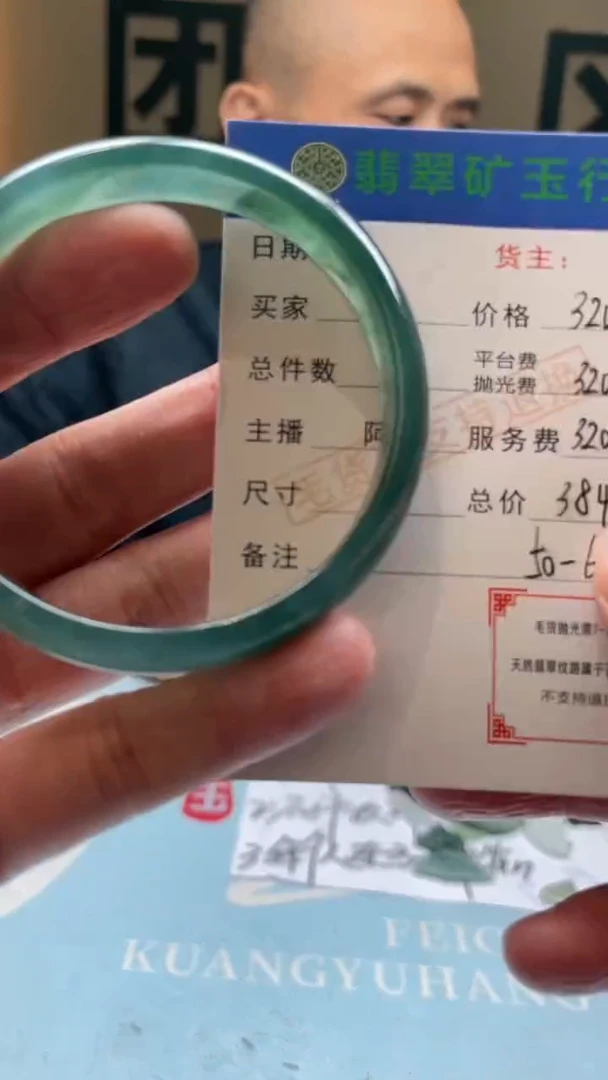 团
翡翠矿玉行
日期
货主：
买家
价格 320
总件数
平台费
抛光费 320
主播 阿
服务费 320
尺寸
总价 384
备注
50-6
毛货抛光需7-
天然翡翠纹路属于
不支持退
玉
FEIC
KUANGYUHANG